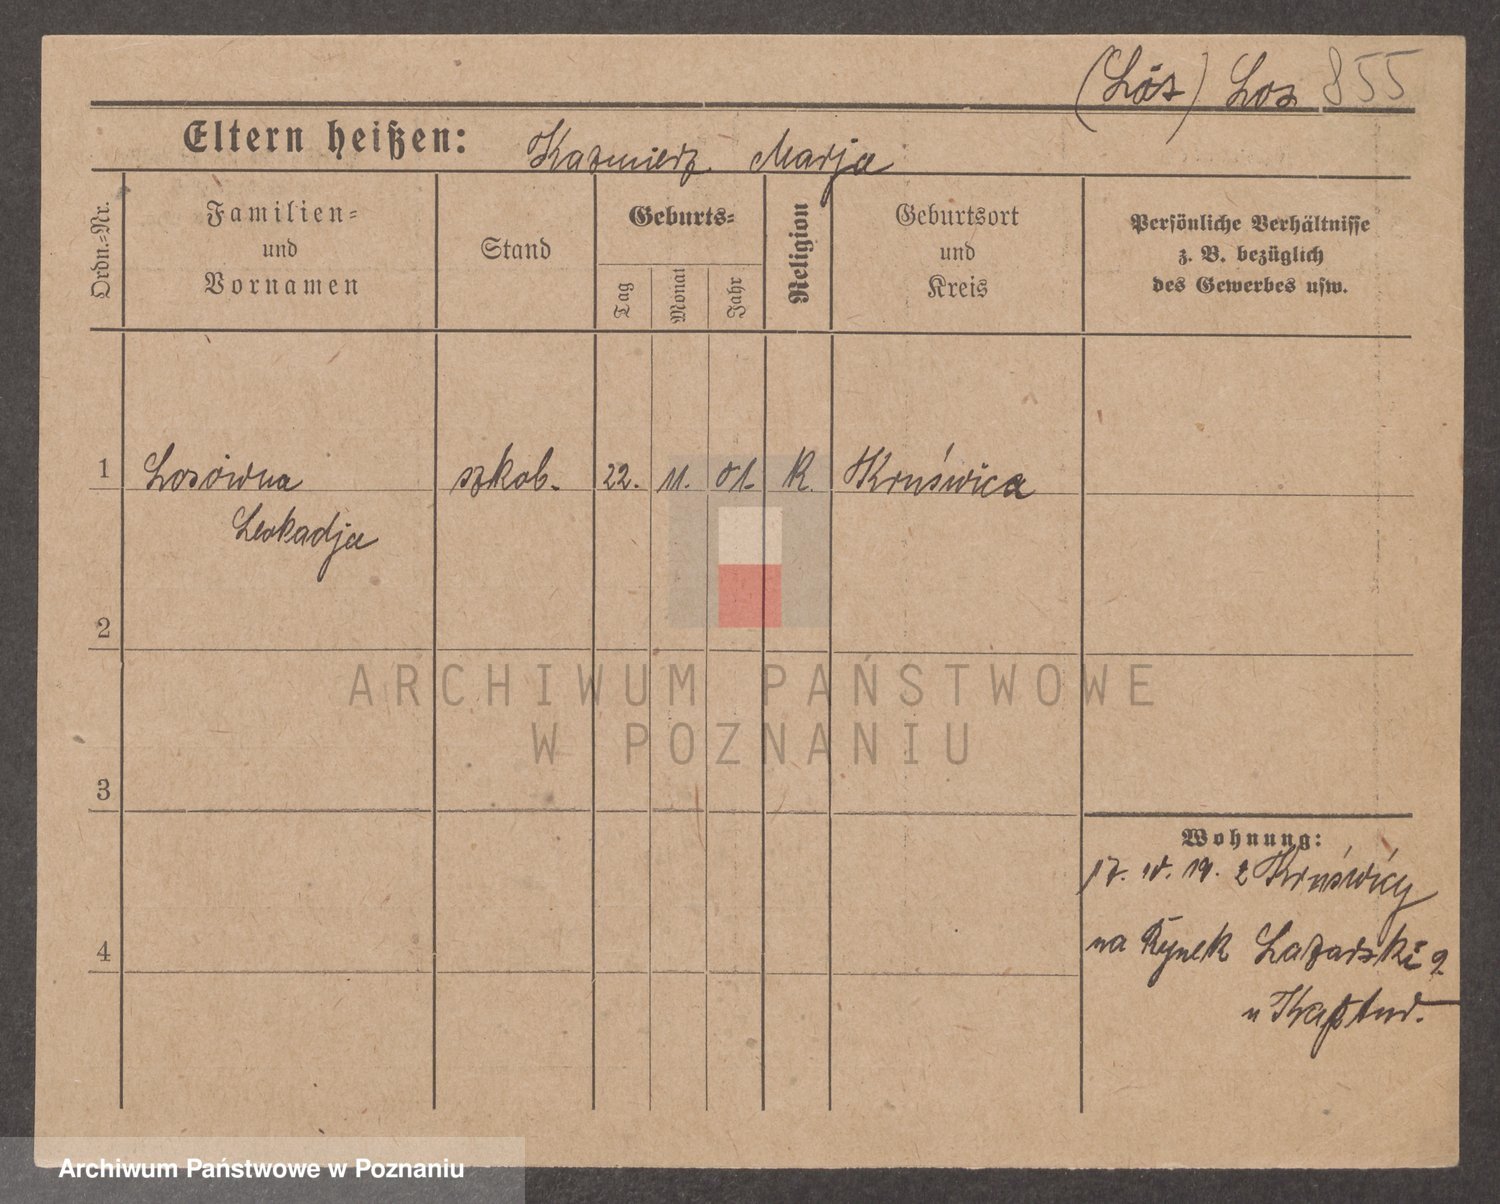 (Lös) Los 855
Eltern heißen: Kazmierz. Marja
Ordn.-Nr.
Familien-
und
Vornamen
Stand
Geburts-
Tag
Monat
Jahr
Religion
Geburtsort
und
Kreis
Persönliche Verhältnisse
z. B. bezüglich
des Gewerbes usw.
1 Losówna szkob. 22. 11. 01. K. Kruświca
Leokadja
2
3
4
Wohnung:
17. IV. 19. z Kruświcy
na Rynek Lazarski 9
u
ARCHIWUM PAŃSTWOWE
W POZNANIU
Archiwum Państwowe w Poznaniu